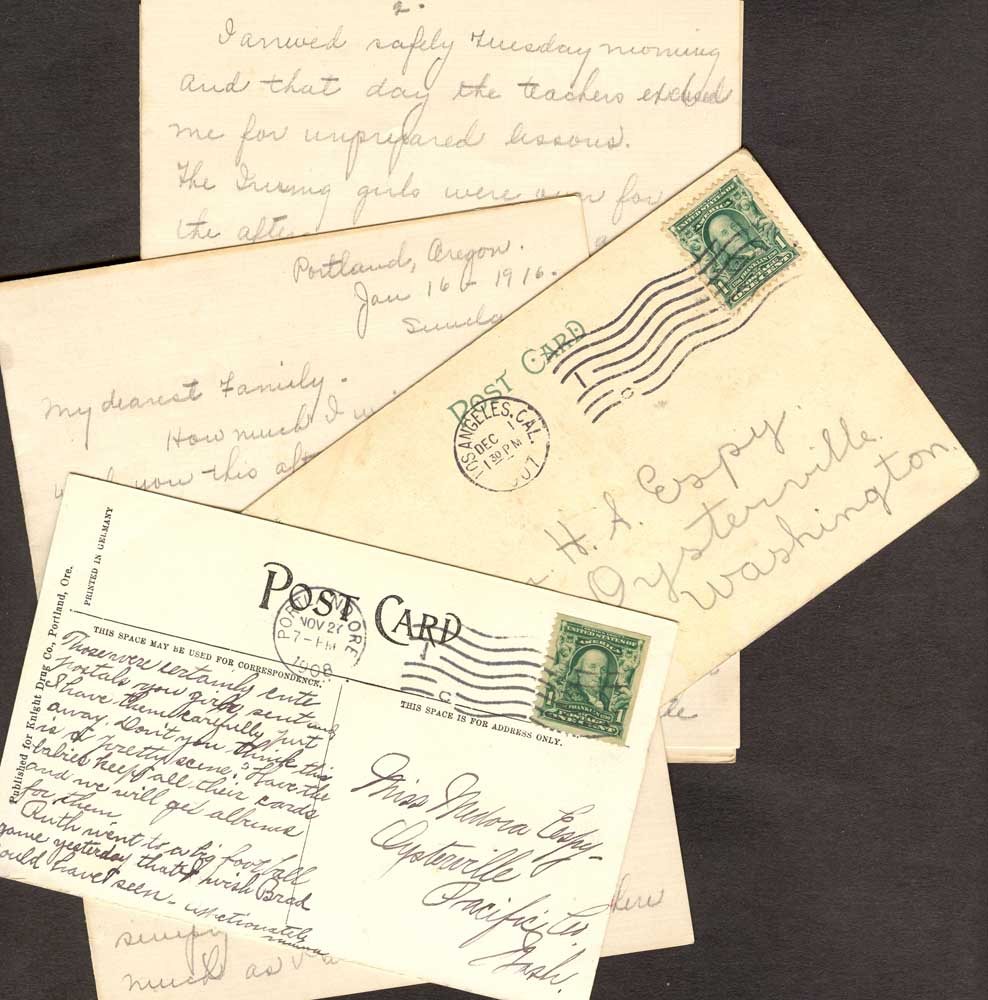 2.
I arrived safely Tuesday morning
and that day the teachers excused
me for unprepared lessons.
The Irving girls were over for
the after
Portland, Oregon.
Jan 16 - 1916.
Sunda
My dearest Family.
How much I wi
you this aft
UNITED STATES OF AMERICA
1 FRANKLIN 1
ONE CENT
POST CARD
LOS ANGELES, CAL.
DEC 1
1 30 PM
1907
H. A. Espy
Oysterville
Washington.
Published for Knight Drug Co., Portland, Ore.
PRINTED IN GERMANY
POST CARD
PORTLAND, ORE
NOV 27
7-PM
1908
THIS SPACE MAY BE USED FOR CORRESPONDENCE.
THIS SPACE IS FOR ADDRESS ONLY.
UNITED STATES OF AMERICA
1 FRANKLIN 1
ONE CENT
Those were certainly cute
postals you girls sent and
I have them carefully put
away. Don't you think this
is a pretty scene? Have the
babies keep all their cards
and we will get albums
for them.
Ruth went to a big football
game yesterday that I wish Brad
ould have seen. affectionately
mama
Miss Medora Espy-
Oysterville
Pacific Co.
Wash.
simply
much as